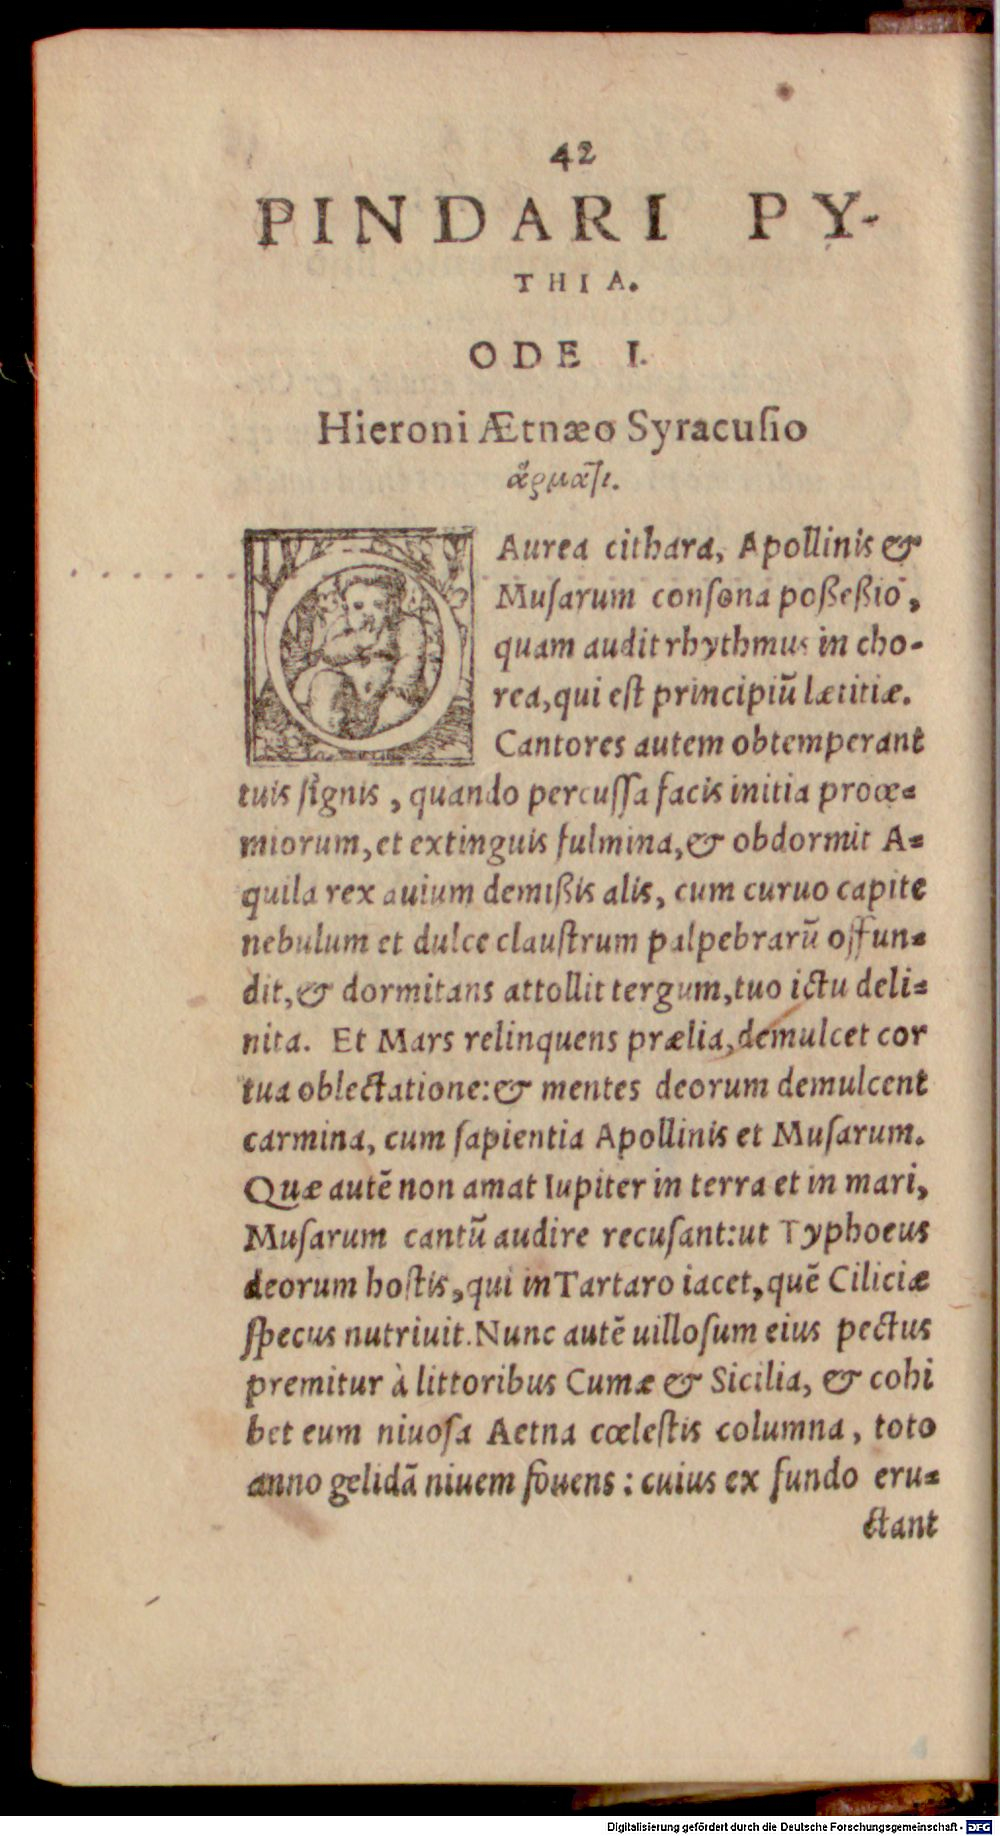 42
PINDARI PY-
THIA.
ODE I.
Hieroni Ætnæo Syracusio
ἅρμασι.
O Aurea cithara, Apollinis &
Musarum consona poßeßio,
quam audit rhythmus in cho-
rea, qui est principiũ lætitiæ.
Cantores autem obtemperant
tuis signis, quando percussa facis initia proœ-
miorum, et extinguis fulmina, & obdormit A-
quila rex auium demißis alis, cum curuo capite
nebulum et dulce claustrum palpebrarũ offun-
dit, & dormitans attollit tergum, tuo ictu deli-
nita. Et Mars relinquens prælia, demulcet cor
tua oblectatione: & mentes deorum demulcent
carmina, cum sapientia Apollinis et Musarum.
Quæ autẽ non amat Iupiter in terra et in mari,
Musarum cantũ audire recusant: ut Typhoeus
deorum hostis, qui in Tartaro iacet, quẽ Ciliciæ
specus nutriuit. Nunc autẽ uillosum eius pectus
premitur à littoribus Cumæ & Sicilia, & cohi
bet eum niuosa Aetna cœlestis columna, toto
anno gelidã niuem fouens: cuius ex fundo eru-
ctant
Digitalisierung gefördert durch die Deutsche Forschungsgemeinschaft - DFG